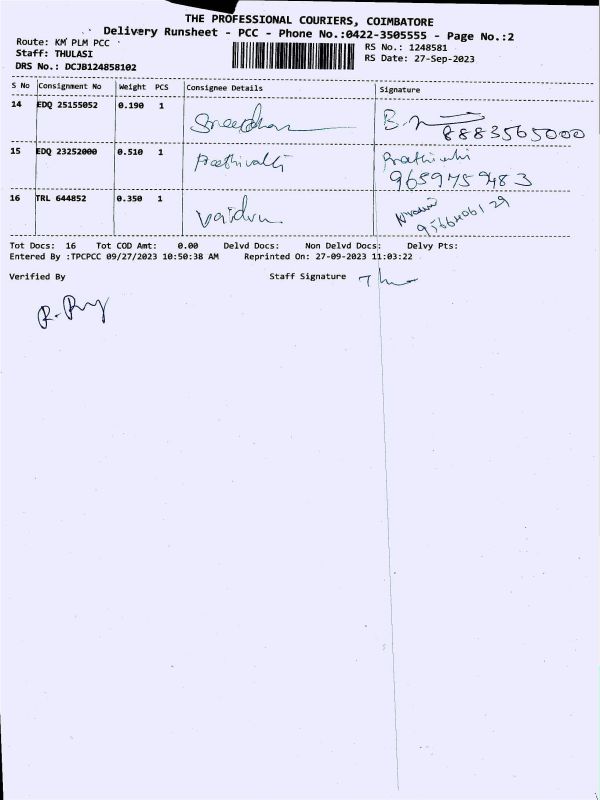 THE PROFESSIONAL COURIERS, COIMBATORE
Delivery Runsheet - PCC - Phone No.:0422-3505555 - Page No.:2
Route: KM PLM PCC
RS No.: 1248581
Staff: THULASI
RS Date: 27-Sep-2023
DRS No.: DCJB124858102
S No Consignment No Weight PCS Consignee Details Signature
14 EDQ 25155052 0.190 1 Sreedharan
8883565000
15 EDQ 23252000 0.510 1 Preethivalli
9659759483
16 TRL 644852 0.350 1
9566406129
Tot Docs: 16 Tot COD Amt: 0.00 Delvd Docs: Non Delvd Docs: Delvy Pts:
Entered By :TPCPCC 09/27/2023 10:50:38 AM Reprinted On: 27-09-2023 11:03:22
Verified By Staff Signature